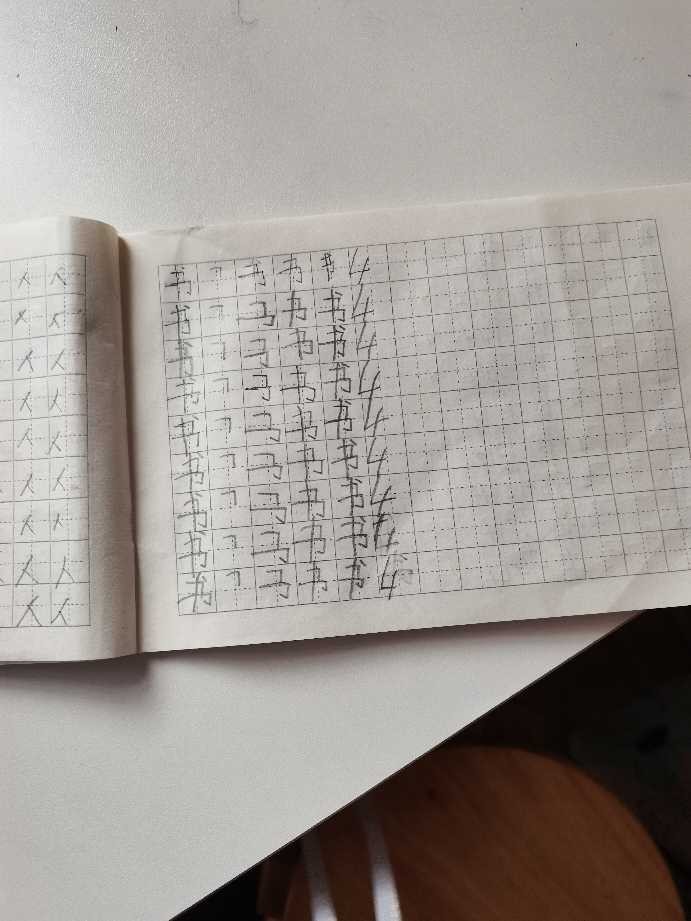 人 人
人 人
人 人
人 人
人 人
人 人
人 人
人 人
人 人
书 ㇕ 书 书 4
书 ㇕ 书 书 4
书 ㇕ 书 书 4
书 ㇕ 书 书 4
书 ㇕ 书 书 4
书 ㇕ 书 书 4
书 ㇕ 书 书 4
书 ㇕ 书 书 4
书 ㇕ 书 书 4